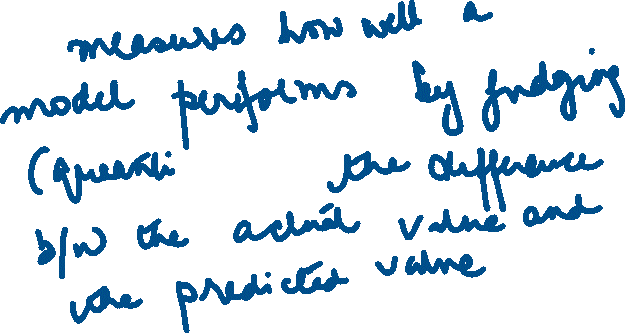 measures how well a
model performs by judging
(quanti the difference
b/w the actual value and
the predicted value